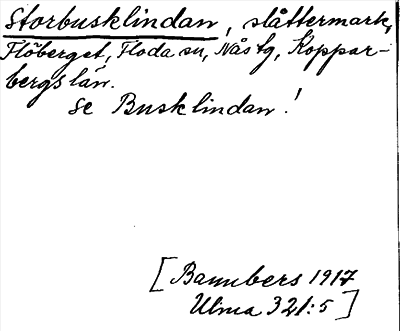 Storbusklindan, slåttermark,
Flöberget, Floda sn, Nås tg, Koppar-
bergs län.
se Busklindan!
[Bannbers 1917
Ulma 321:5]